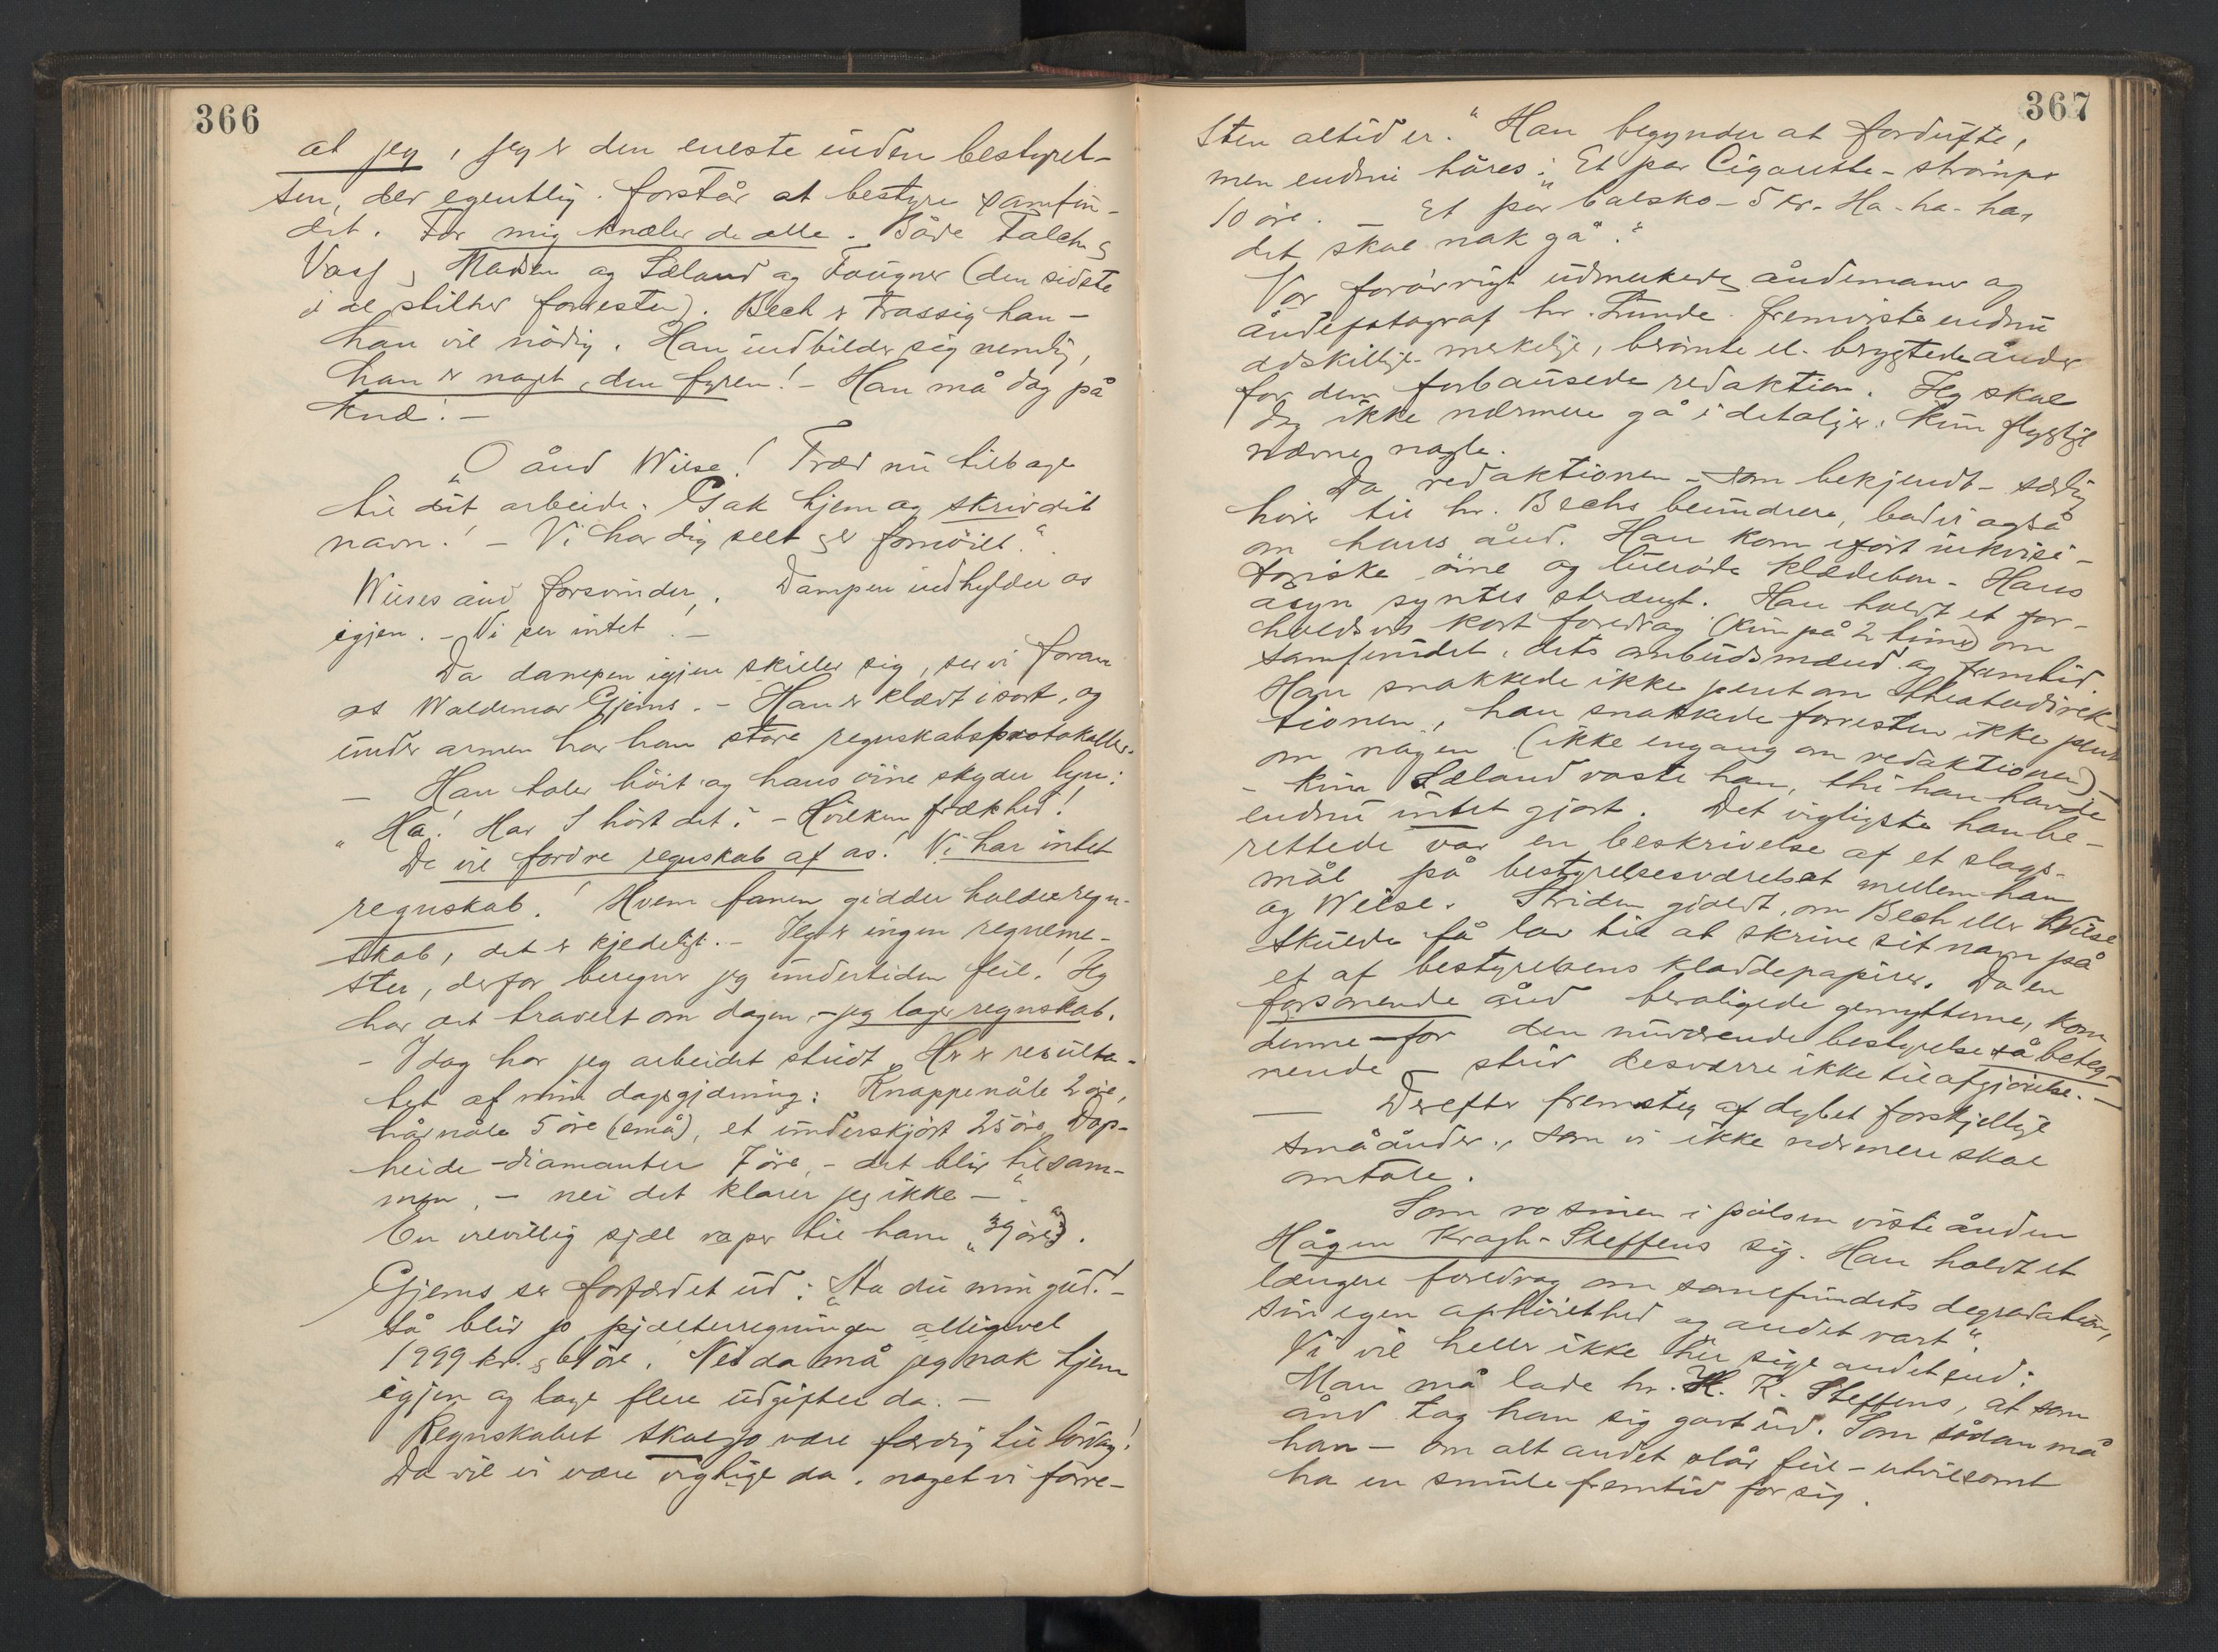 366
at jeg, jeg er den eneste inden bestyrel-
sen, der egentlig forstår at bestyre samfun-
det. For mig knæler de alle. Både Falch &
Vass, Madsen og Sæland og Fougner (den sidste
i al stilhet forresten). Bech er trassig han -
han vil nödig. Han indbilder sig nemlig,
han er noget, den fyren! - Han må dog på
knæ! -
"O ånd Wiese! Træd nu tilbage
til dit arbeide. Gak hjem og skriv dit
navn! - Vi har dig seet & er fornöiet."
Wieses ånd forsvinder. Dampen indhyller os
igjen. - Vi ser intet! -
Da dampen igjen skiller sig, ser vi foran
os Waldemar Gjems. - Han er klædt i sort, og
under armen har han store regnskabsprotokoller.
- Han taler höit og hans öine skyder lyn:
"Ha! Har I hört det? - Hvilken frækhed!
De vil fordre regnskab af os! Vi har intet
regnskab! Hvem fanen gidder holde regn-
skab, det er kjedeligt. - Jeg er ingen regneme-
ster, derfor beregner jeg undertiden feil! Jeg
har det travelt om dagen, - jeg lager regnskab.
- Idag har jeg arbeidet stridt. Her er resulta-
tet af min dagsgjerning: Knappenåle 2 öre,
hårnåle 5 öre (små), et underskjört 25 öre, Dop-
heide-diamanter 7 öre, - det blir tilsam-
men, - nei det klarer jeg ikke -".
En velvillig sjæl roper til ham "39 öre".
Gjems ser forfærdet ud: "Aa du min gud! -
så blir jo pjalterregningen alligevel
1999 kr. & 61 öre. Nei da må jeg nok hjem
igjen og lage flere udgifter da. -
Regnskabet skal jo være færdig til lördag!
Da vil vi være vigtige da, noget vi forre-
367
sten altid er." Han begynder at fordufte,
men endnu höres: "Et par Cigarette-strömper
10 öre. - Et par balsko - 5 kr. Ha-ha-ha,
det skal nok gå."
Vor forövrigt udmerkede åndemaner og
åndefotograf hr. Lunde fremviste endnu
adskillige merkelige, berömte el. berygtede ånder
for den forbausede redaktion. Jeg skal
dog ikke nærmere gå i detaljer. Kun flygtigt
nævne nogle.
Da redaktionen - som bekjendt - særlig
hörer til hr. Bechs beundrere, bad vi også
om hans ånd. Han kom iført inkvisi-
toriske öine og luerøde klædebon. Hans
åsyn syntes strængt. Han holdt et for-
holdsvis kort foredrag (kun på 2 timer) om
samfundet, dets ombudsmænd og fremtid.
Han snakkede ikke pent om theaterdirek-
tionen, han snakkede forresten ikke pent
om nogen (ikke engang om redaktionen) -
- kun Sæland roste han, thi han havde
endnu intet gjort. Det vigtigste han be-
rettede var en beskrivelse af et slags-
mål på bestyrelsesværelset mellem ham
og Wiese. Striden gjaldt, om Bech eller Wiese
skulde få lov til at skrive sit navn på
et af bestyrelsens kladdepapirer. Da en
forsonende ånd beroligede gemytterne, kom
denne - for den nuværende bestyrelse så beteg-
nende - strid desværre ikke til afgjörelse. -
- Derefter fremsteg af dybet forskjellige
småånder, som vi ikke nærmere skal
omtale.
Som rosinen i pölsen viste ånden
Hågen Kragh-Steffens sig. Han holdt et
længere foredrag om samfundets degradation,
sin egen ophöiethed og andet rart".
Vi vil heller ikke her sige andet end:
Man må lade hr. H. K. Steffens, at som
ånd tog han sig godt ud. Som sådan må
han - om alt andet slår feil - utvilsomt
ha en smule fremtid for sig.